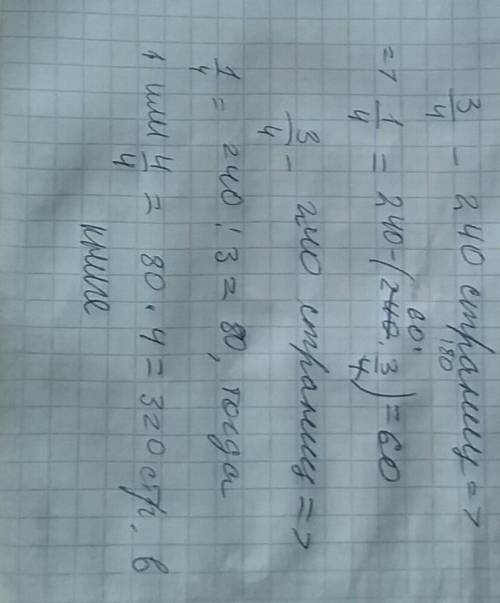 3/4 - 240 страниц =>
=> 1/4 = 240 - (240 · 3/4) = 60
60
180
3/4 - 240 страниц =>
1/4 = 240 : 3 = 80, тогда
1 или 4/4 = 80 · 4 = 320 стр. в
книге